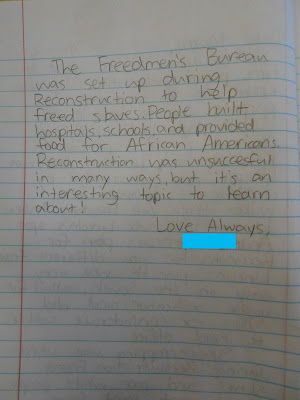 The Freedmen's Bureau
was set up during
Reconstruction to help
freed slaves. People built
hospitals, schools, and provided
food for African Americans.
Reconstruction was unsuccesful
in many ways, but it's an
interesting topic to learn
about!
Love Always,